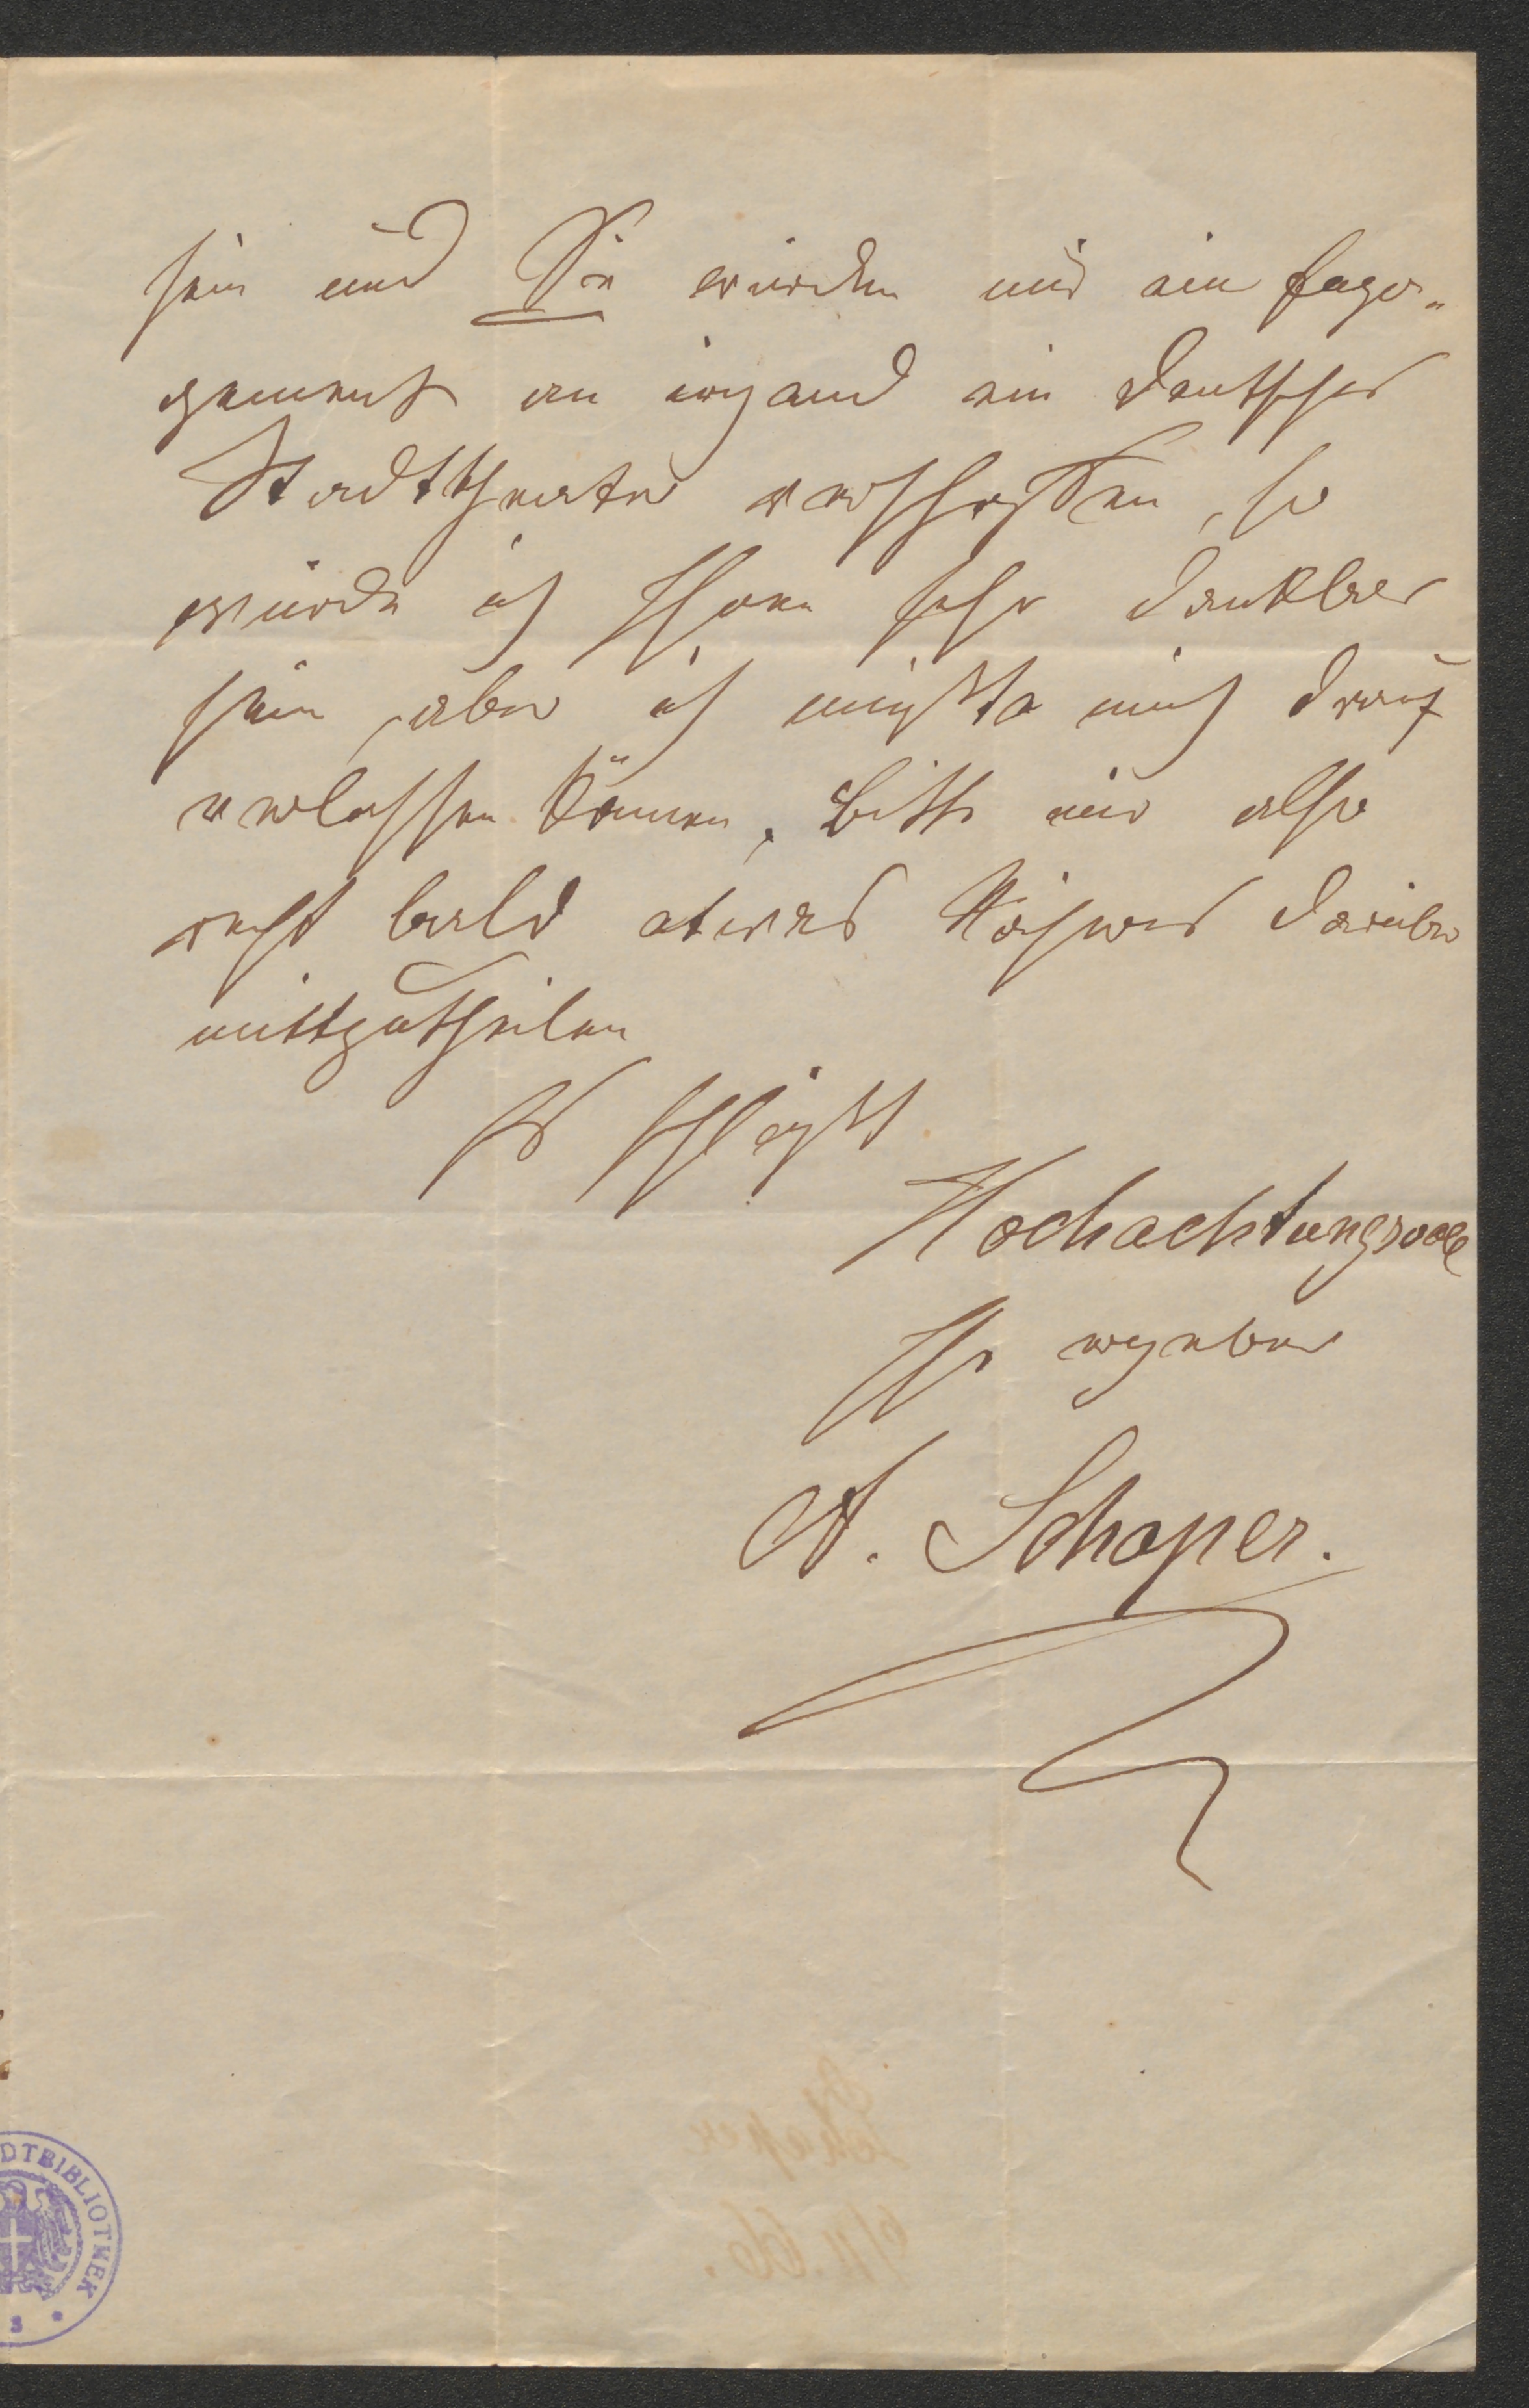 sein und Sie würden mir ein Enga-
gement an irgend ein deutsches
Stadttheater verschaffen, so
würde ich Ihnen sehr dankbar
sein, aber ich müßte mich drauf
verlassen können. Bitte mir also
recht bald etwas Näheres darüber
mittzutheilen
Es schließt
Hochachtungsvoll
Ihr ergebener
A. Schaper.
DTBIBLIOTHEK